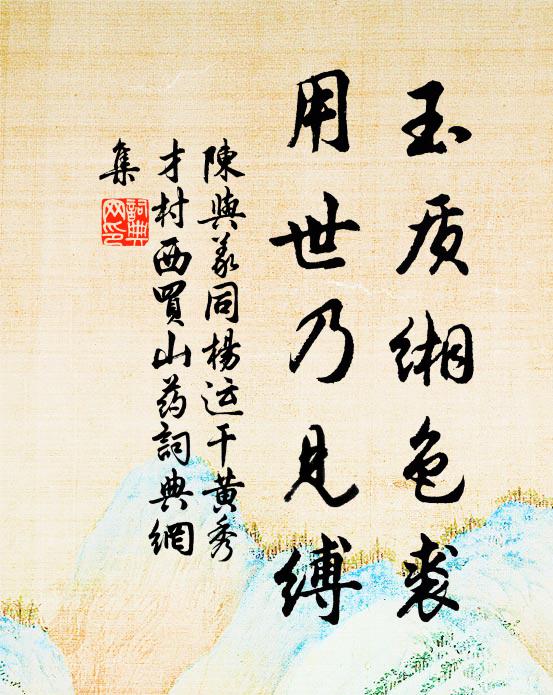 玉质缃色裘
用世乃见缚
陳與义同楊运干黄秀
才村西買山药詞典網
集
詞典
网印